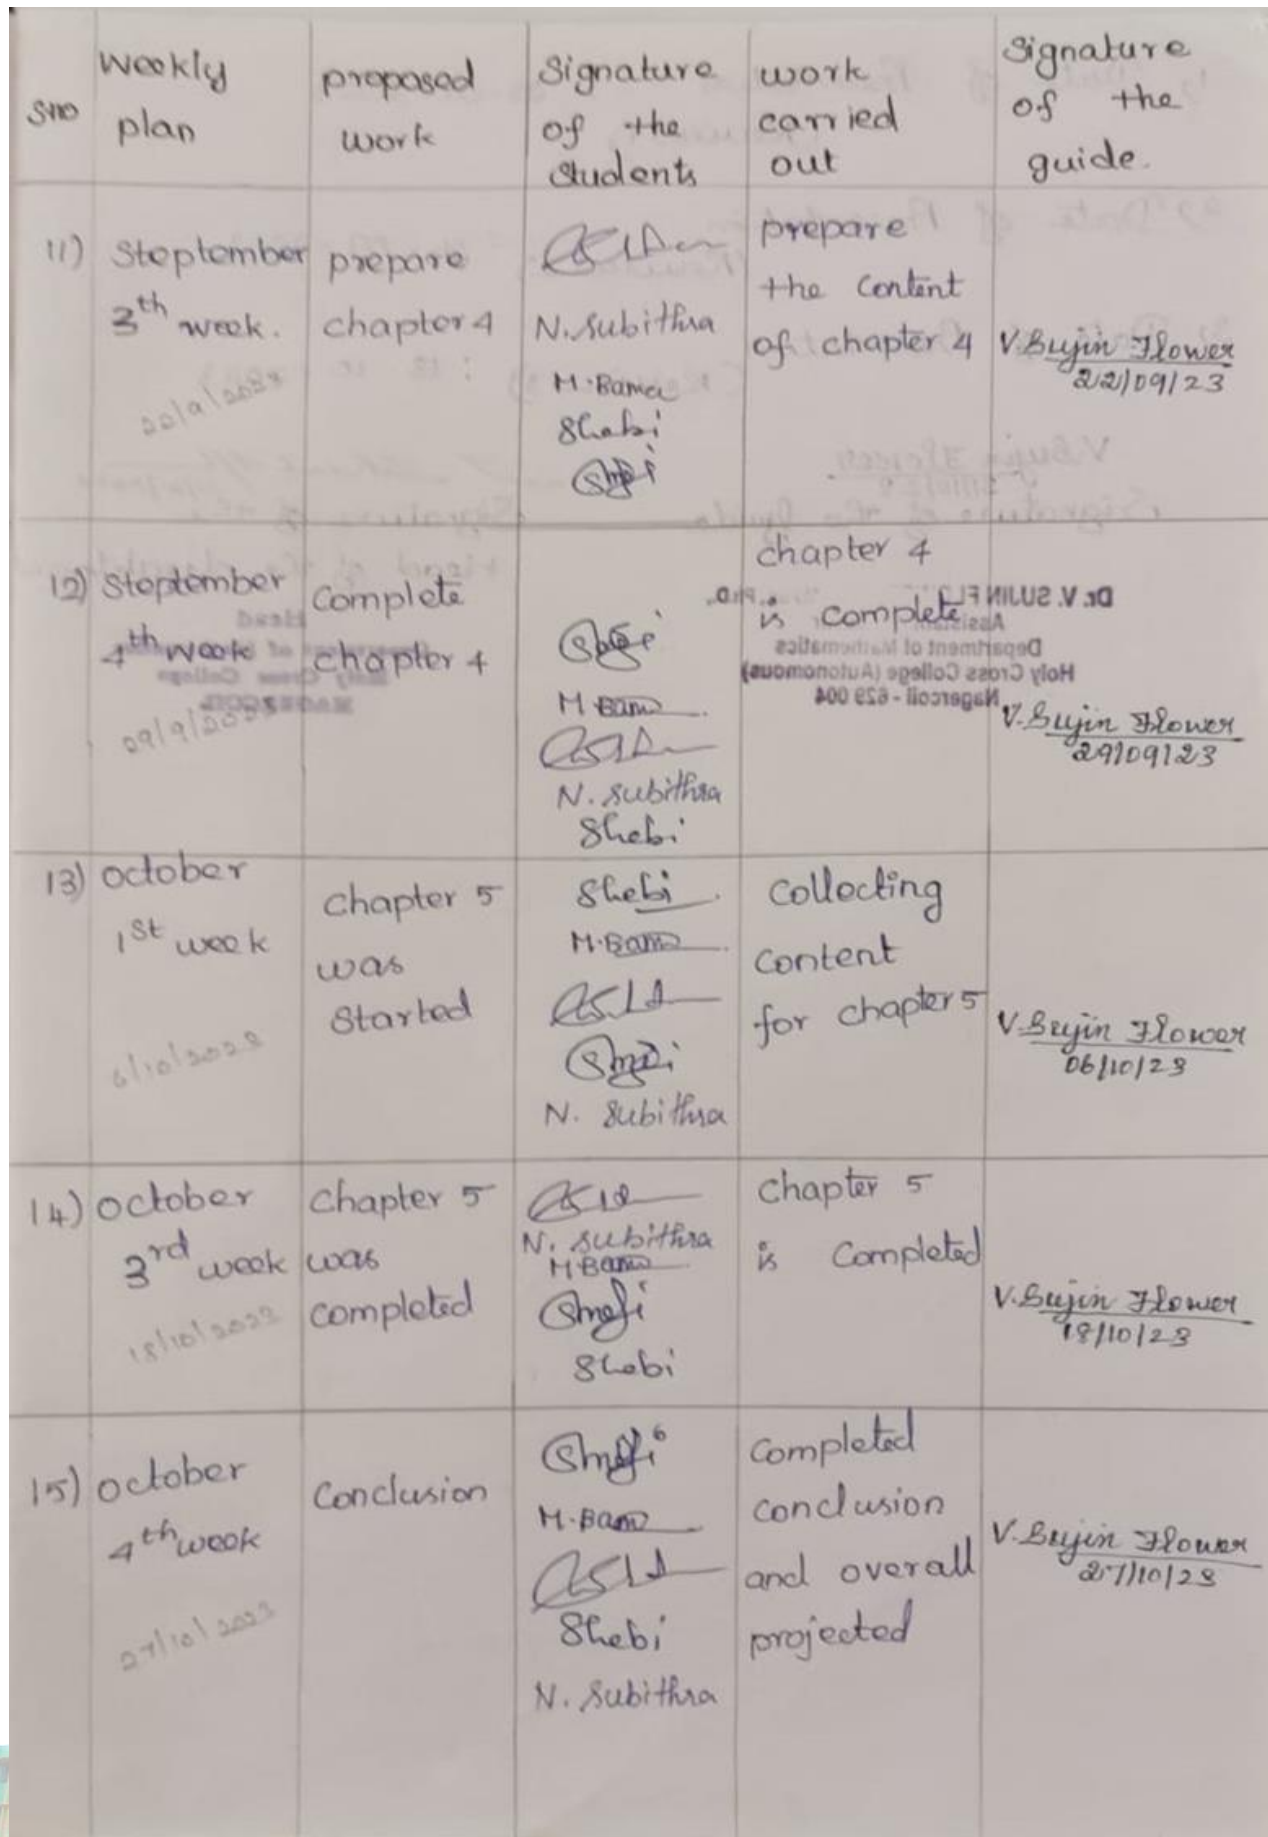 Sno
Weekly
plan
proposed
work
Signature
of the
Students
work
carried
out
Signature
of the
guide.
11)
Steptember
3th week.
22/9/2023
prepare
chapter 4
N. Subithra
M. Bama
Shebi
prepare
the content
of chapter 4
V. Sujin Flower
22/09/23
12)
Steptember
4th week
Complete
chapter 4
M. Bama
N. Subithra
Shebi
chapter 4
is complete
Dr. V. SUJIN FL
Assistant
Department of Mathematics
Holy Cross College (Autonomous)
Nagercoil - 629 004
V. Sujin Flower
29/09/23
13)
October
1st week
6/10/2023
Chapter 5
was
Started
Shebi
M. Bama
N. Subithra
Collecting
Content
for chapter 5
V. Sujin Flower
06/10/23
14)
October
3rd week
18/10/2023
Chapter 5
was
completed
N. Subithra
M. Bama
Shebi
Chapter 5
is Completed
V. Sujin Flower
18/10/23
15)
October
4th week
27/10/2023
Conclusion
M. Bama
Shebi
N. Subithra
Completed
conclusion
and overall
projected
V. Sujin Flower
27/10/23